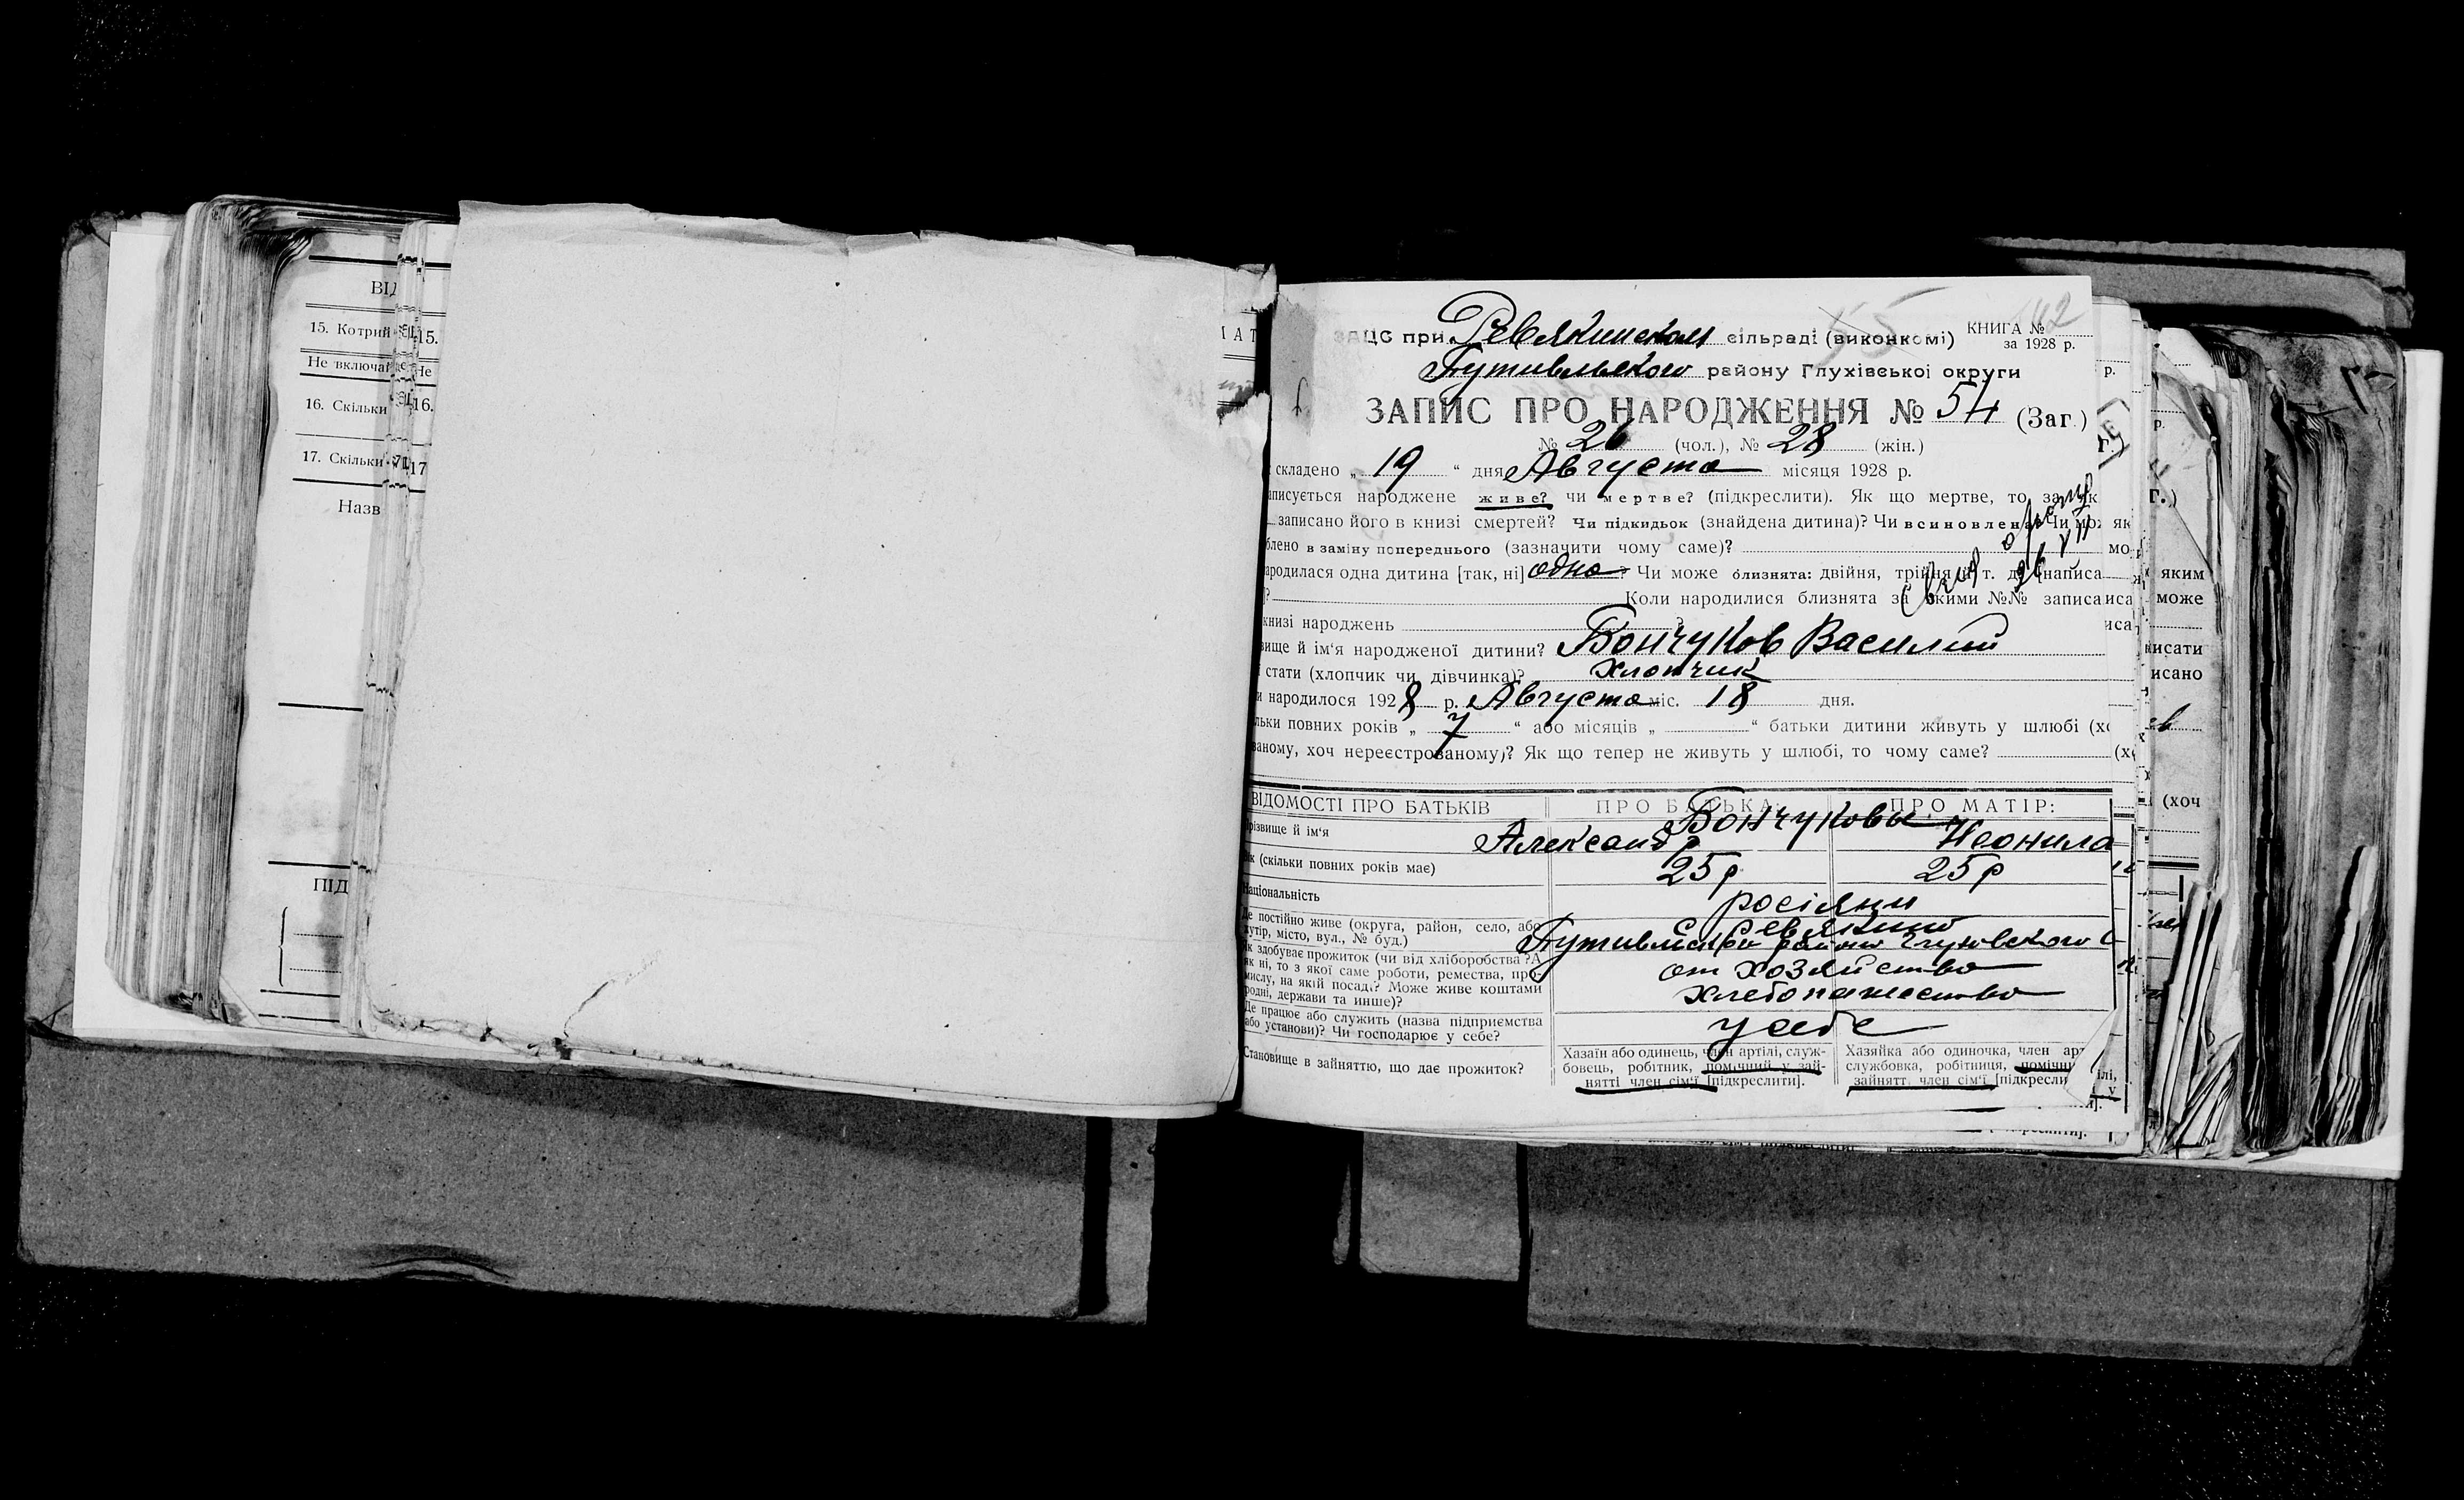 ВІД
15. Котрий
Не включа
16. Скільки
17. Скільки
Назв
ПІД
15.
Не
16.
17
ЗАЦС при Ревякинском сільраді (виконкомі) КНИГА №
за 1928 р.
Путивльского району Глухівської округи
ЗАПИС ПРО НАРОДЖЕННЯ № 54 (Заг.)
№ 26 (чол.), № 28 (жін.)
складено „ 19 “ дня Августа місяця 1928 р.
аписується народжене живе? чи мертве? (підкреслити). Як що мертве, то за як
записано його в книзі смертей? Чи підкидьок (знайдена дитина)? Чи всиновлена? Чи мо
блено в заміну попереднього (зазначити чому саме)?
ародилася одна дитина [так, ні] одна? Чи може близнята: двійня, трійня й т. д. (написа
]? Коли народилися близнята за якими №№ записа
книзі народжень ?
вище й ім‘я народженої дитини? Бончуков Василий
ї стати (хлопчик чи дівчинка)? Хлопчик
и народилося 1928 р. Августа міс. 18 дня.
льки повних років „ 7 “ або місяців „ “ батьки дитини живуть у шлюбі (хо
ваному, хоч нереєстрованому)? Як що тепер не живуть у шлюбі, то чому саме?
ВІДОМОСТІ ПРО БАТЬКІВ ПРО БАТЬКА: ПРО МАТІР:
Прізвище й ім‘я Бончуковы
Александр Неонила
Вік (скільки повних років має) 25 р 25 р
Національність росіяни
Де постійно живе (округа, район, село, або
хутір, місто, вул., № буд.) С. Ревякино
Як здобуває прожиток (чи від хліборобства? А
як ні, то з якої саме роботи, ремества, про-
мислу, на якій посаді? Може живе коштами
родні, держави та инше)?
от хозяйства
хлебопашества
Де працює або служить (назва підприємства
або установи)? Чи господарює у себе? у себе
Становище в зайняттю, що дає прожиток?
Хазаїн або одинець, член артілі, служ-
бовець, робітник, помічний у зай-
нятті член сім‘ї [підкреслити].
Хазяйка або одиночка, член арт
службовка, робітниця, помічн
зайнятт. член сім‘ї [підкресли
яким
може
исати
исано
(хоч